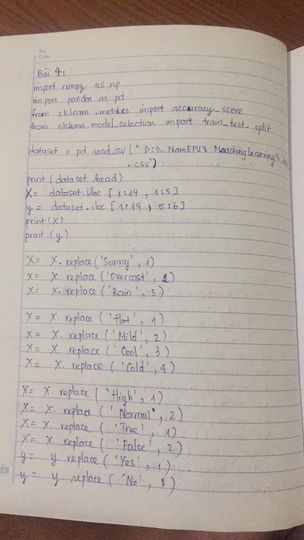 No
Date
Bài 4:
import numpy as np
import pandas as pd
from sklearn.metrics import accuracy_score
from sklearn.model_selection import train_test_split
dataset = pd.read_csv("D:\\ NamEPU\\ Matching Learning\\
.csv")
print(dataset.head)
X= dataset.iloc [1:14, 1:5]
y = dataset.iloc [1:14, 5:6]
print(X)
print (y)
X= X.replace('Sunny', 1)
X= X.replace('Overcast', 2)
X= X.replace('Rain', 3)
X= X.replace('Hot', 1)
X= X.replace('Mild', 2)
X= X replace('Cool', 3)
X= X.replace('Cold', 4)
X= X.replace('High', 1)
X= X.replace('Normal', 2)
X= X.replace('True', 1)
X= X.replace('False', 2)
y= y replace('Yes', 1)
y= y.replace('No', 0)